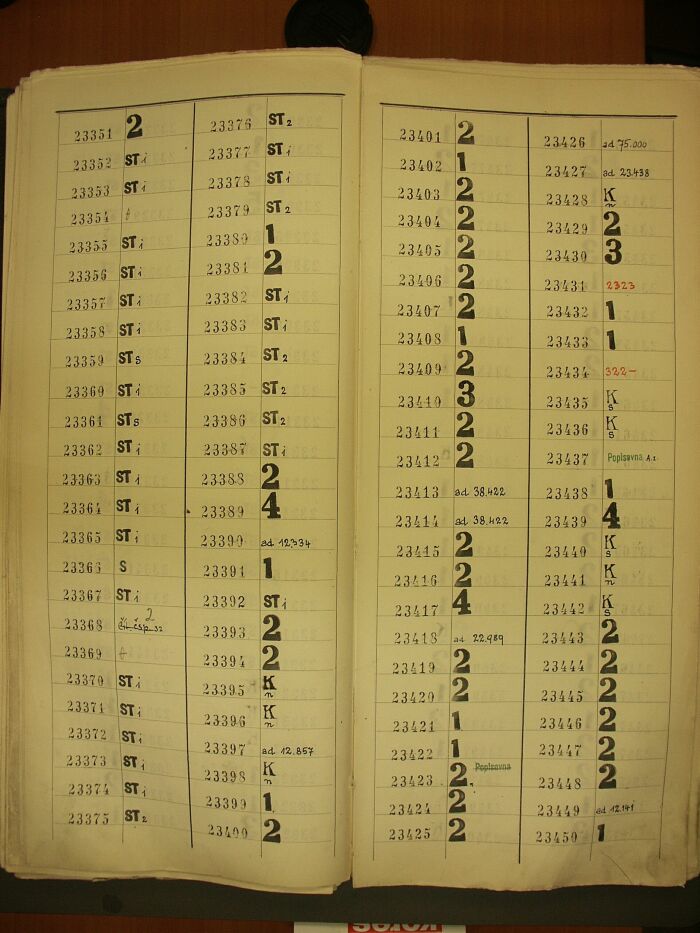 23351 2
23352 ST i
23353 ST i
23354 t
23355 ST i
23356 ST i
23357 ST i
23358 ST i
23359 ST s
23360 ST i
23361 ST s
23362 ST i
23363 ST i
23364 ST i
23365 ST i
23366 S
23367 ST i
23368 2
23369 t
23370 ST i
23371 ST i
23372 ST i
23373 ST i
23374 ST i
23375 ST 2
23376 ST 2
23377 ST i
23378 ST i
23379 ST 2
23380 1
23381 2
23382 ST i
23383 ST i
23384 ST 2
23385 ST 2
23386 ST 2
23387 ST i
23388 2
23389 4
23390 ad 12.334
23391 1
23392 ST i
23393 2
23394 2
23395 K n
23396 K n
23397 ad 12.857
23398 K n
23399 1
23400 2
23401 2
23402 1
23403 2
23404 2
23405 2
23406 2
23407 2
23408 1
23409 2
23410 3
23411 2
23412 2
23413 ad 38.422
23414 ad 38.422
23415 2
23416 2
23417 4
23418 ad 22.989
23419 2
23420 2
23421 1
23422 1
23423 2 Popisovna
23424 2
23425 2
23426 ad 75.000
23427 ad 23.438
23428 K n
23429 2
23430 3
23431 2323
23432 1
23433 1
23434 322-
23435 K s
23436 K s
23437 Popisovna A.I.
23438 1
23439 4
23440 K s
23441 K n
23442 K s
23443 2
23444 2
23445 2
23446 2
23447 2
23448 2
23449 ad 12.141
23450 1